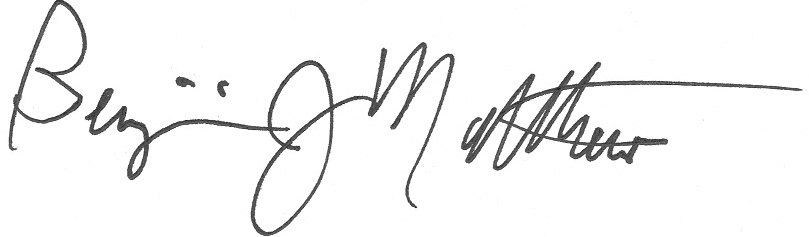 Benjamin J Matthews